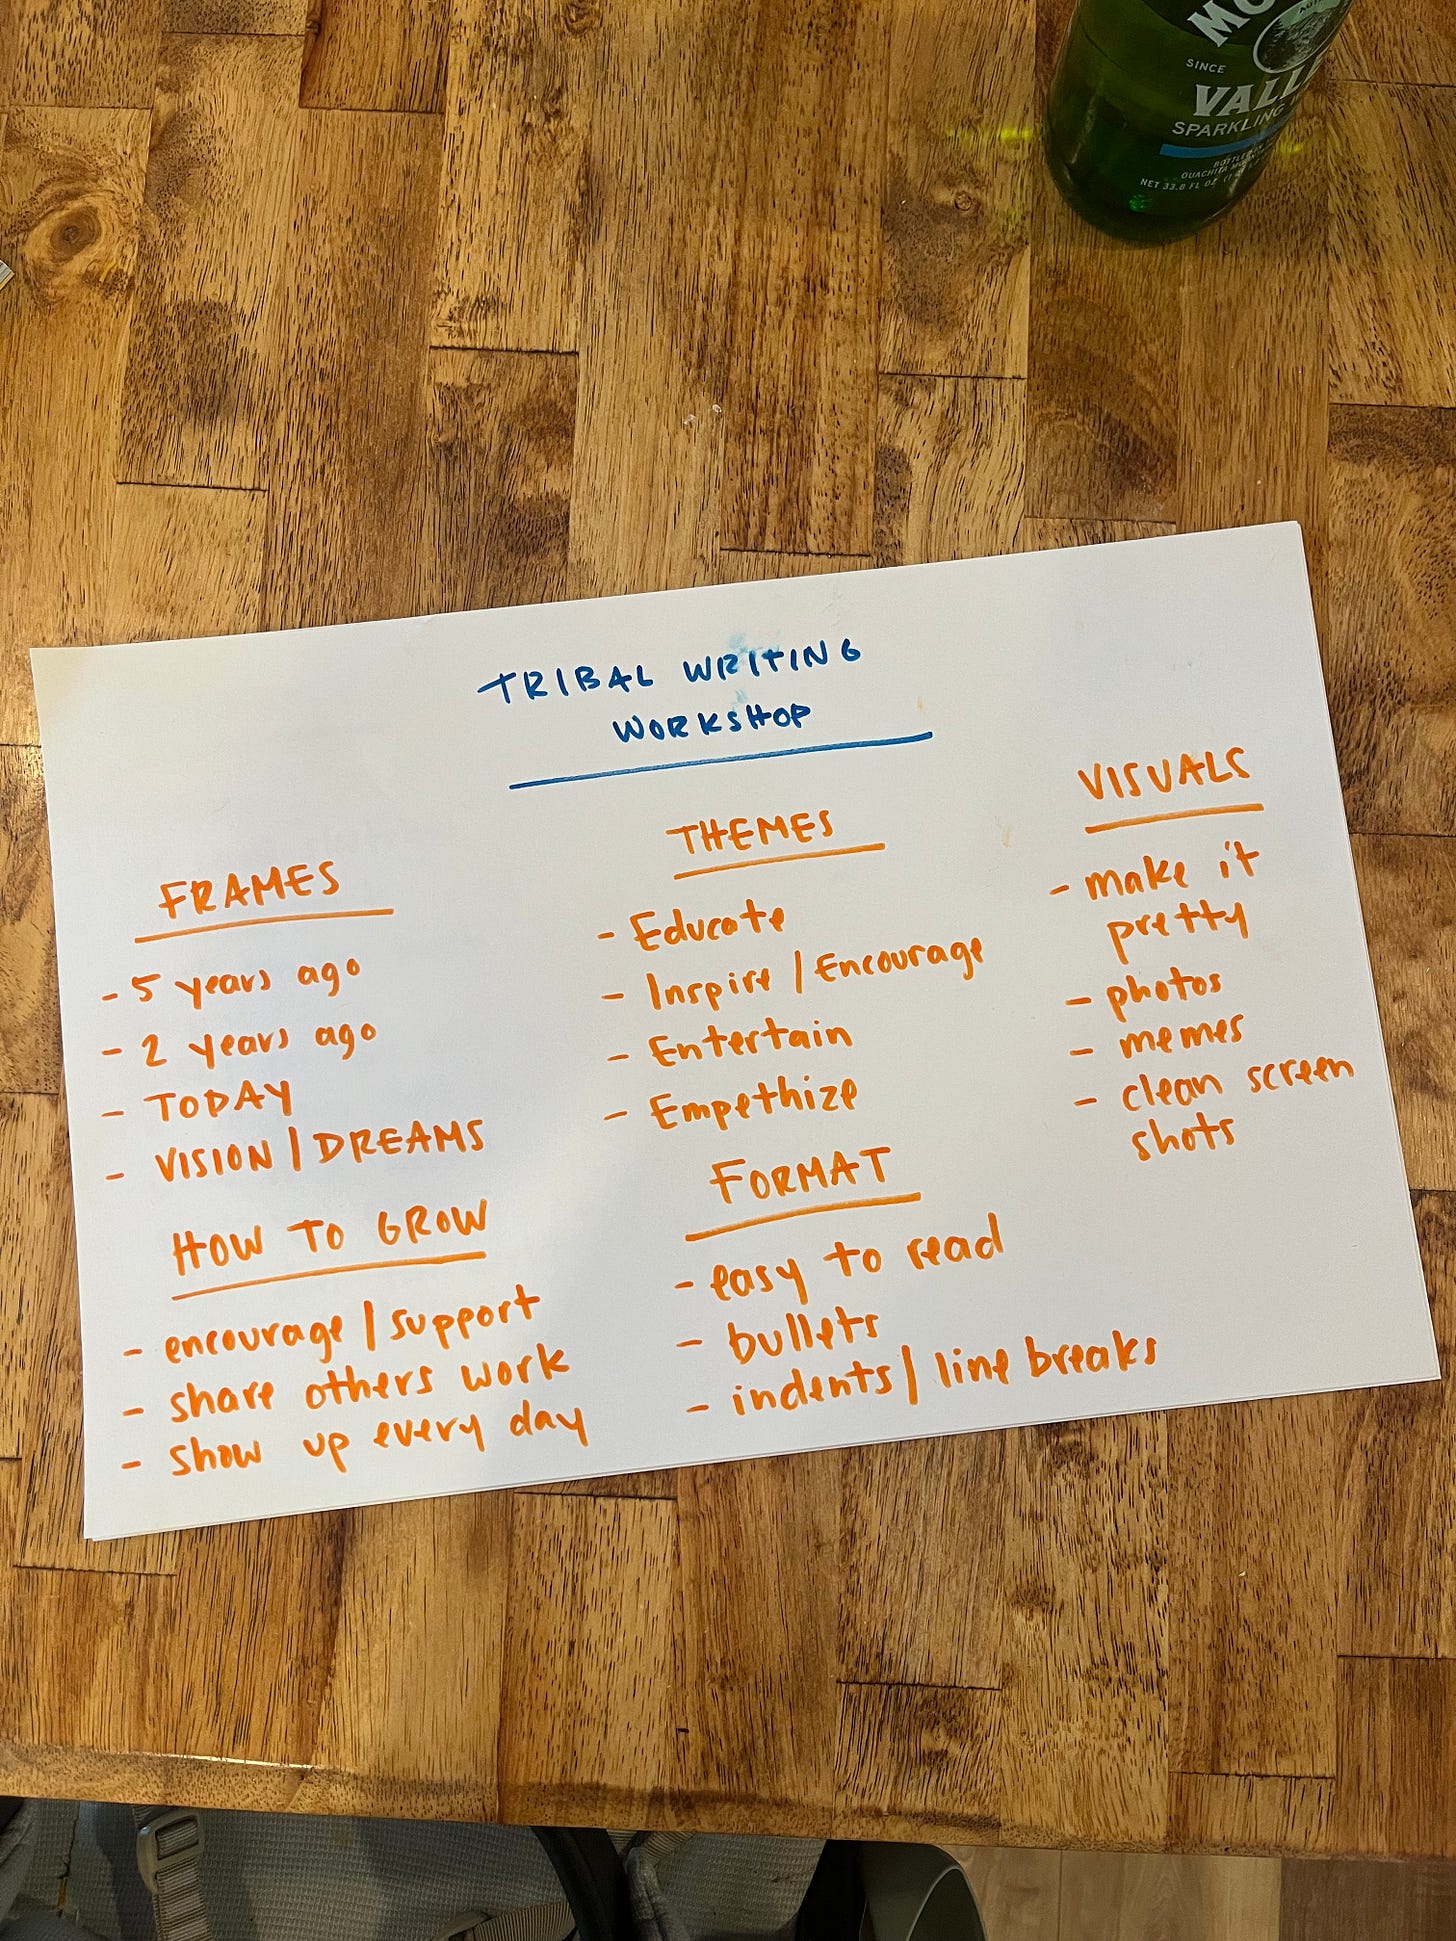 SINCE
VALL
SPARKLING
NET 33.8 FL OZ
TRIBAL WRITING
WORKSHOP
FRAMES
- 5 years ago
- 2 years ago
- TODAY
- VISION / DREAMS
HOW TO GROW
- encourage / support
- share others work
- show up every day
THEMES
- Educate
- Inspire / Encourage
- Entertain
- Empethize
FORMAT
- easy to read
- bullets
- indents / line breaks
VISUALS
- make it
pretty
- photos
- memes
- clean screen
shots